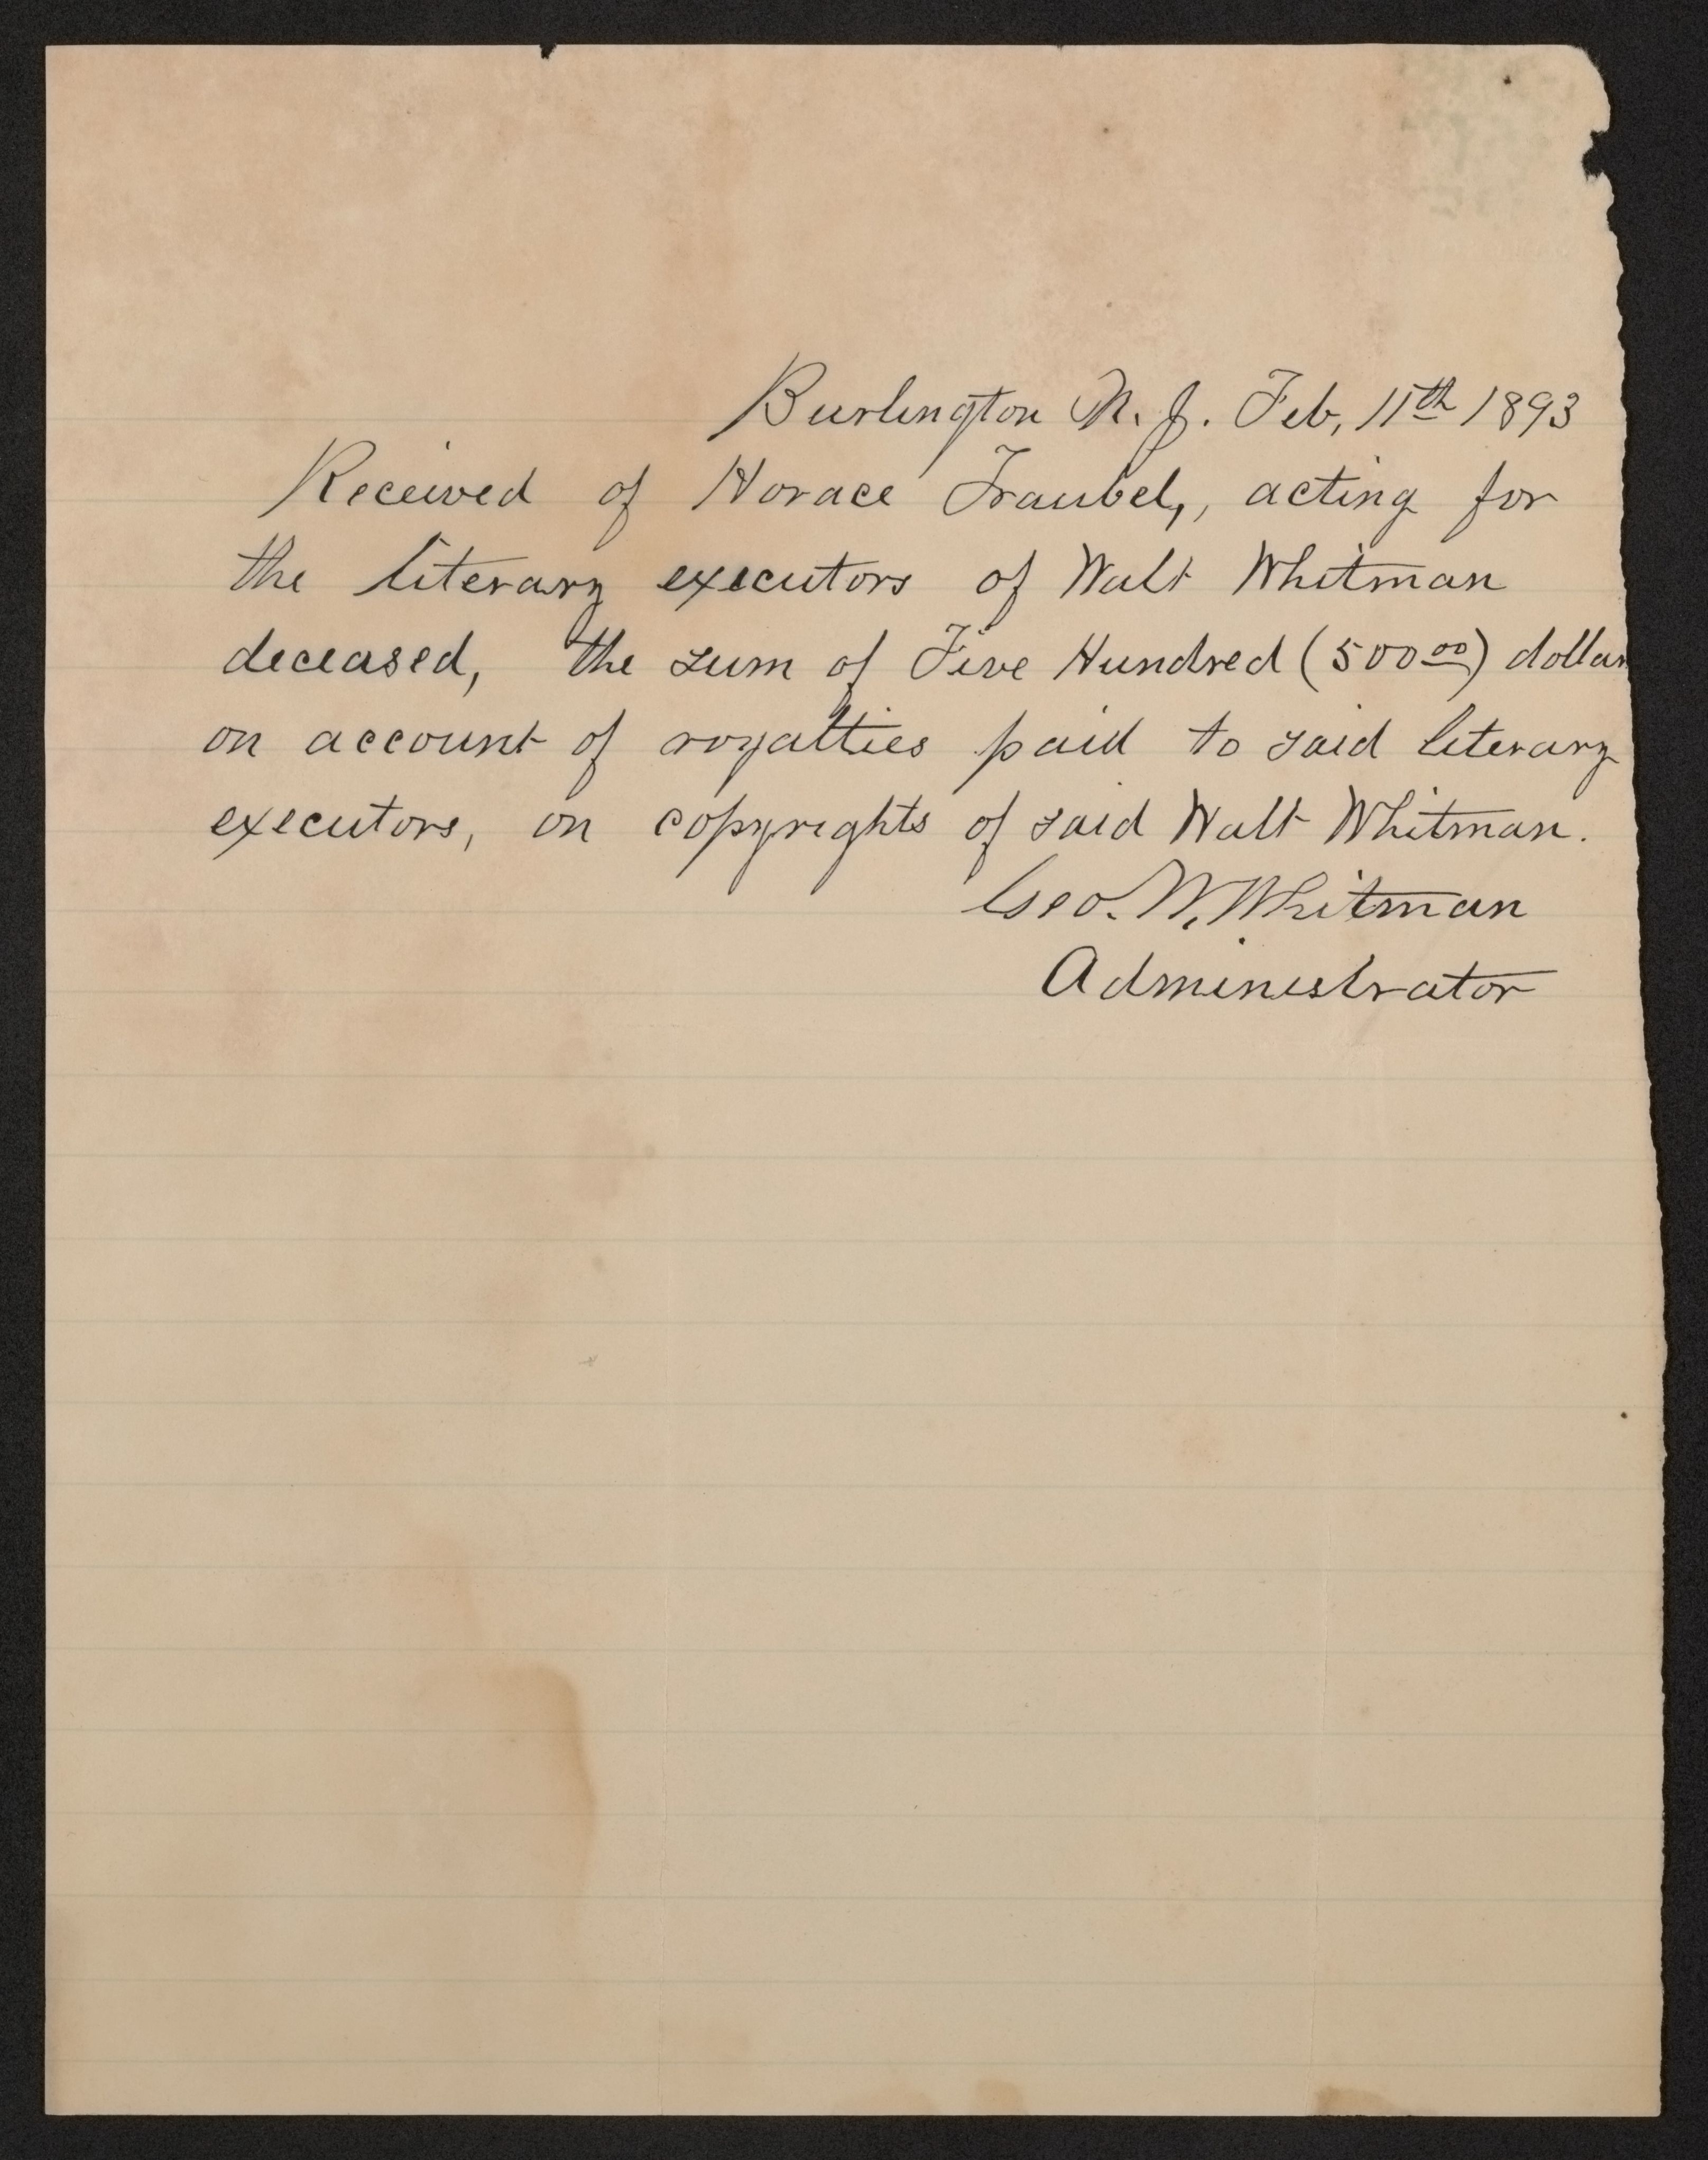 Burlington N. J. Feb, 11th 1893
Received of Horace Traubel,, acting for
the literary executors of Walt Whitman
deceased, the sum of Five Hundred (500 00) dollar
on account of royalties paid to said literary
executors, on copyrights of said Walt Whitman.
Geo. W. Whitman
Administrator